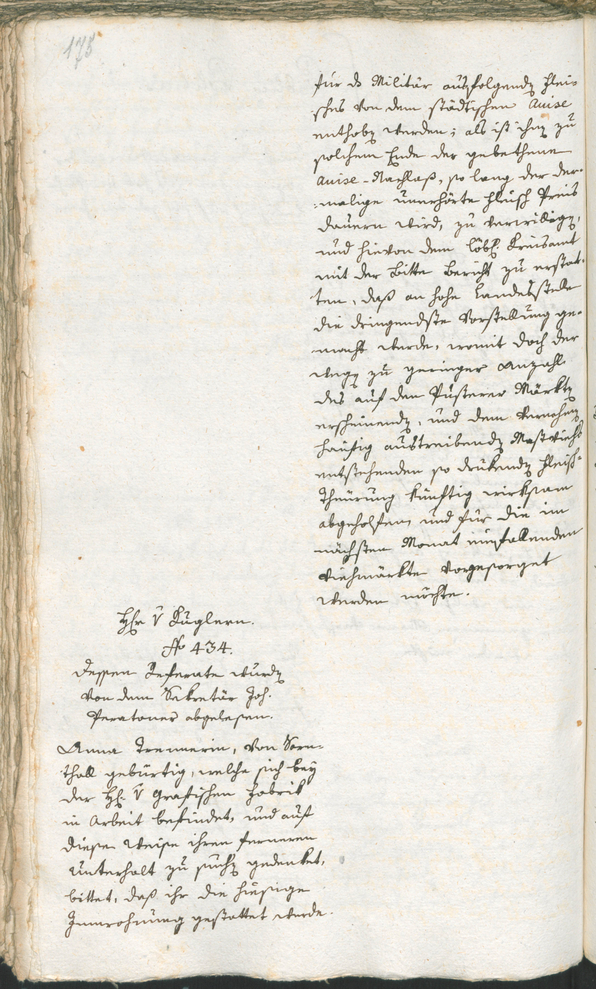 178
für ds Militär ausfolgendn Flei-
sches von dem städtischen Accise
enthobn werden; als ist ihm zu
solchem Ende der gebethene
Accise-Nachlaß, so lang der der-
malige unerhörte Fleisch Preis
dauern wird, zu verwilligen,
und hievon dem löbl. Kreisamt
mit der Bitte Bericht zu erstat-
ten, daß an hohe Landesstelle
die dringendste Vorstellung ge-
macht werde, womit doch der
wegen zu geringer Anzahl
des auf den Pusterer Märktn
erscheinendn, und dem
häufig austreibendn Mastviehs
entstehenden so drükendn Fleisch-
Theürung künftig wirksam
abgeholfen, und für die im
nächsten Monat einfallenden
Viehmärkte vorgesorget
werden möchte.
Hr. v Küglern.
No 434.
Dessen Referate wurdn
von dem Sekretär Joh.
Peratoner abgelesen.
Anna Trennerin, von Sarn-
thall gebürtig, welche sich bey
der Hl. v Grafischen Fabrik
in Arbeit befindet, und auf
diese Weise ihren ferneren
Unterhalt zu suchn gedenket,
bittet, daß ihr die hiesige
Innwohnung gestattet werde.